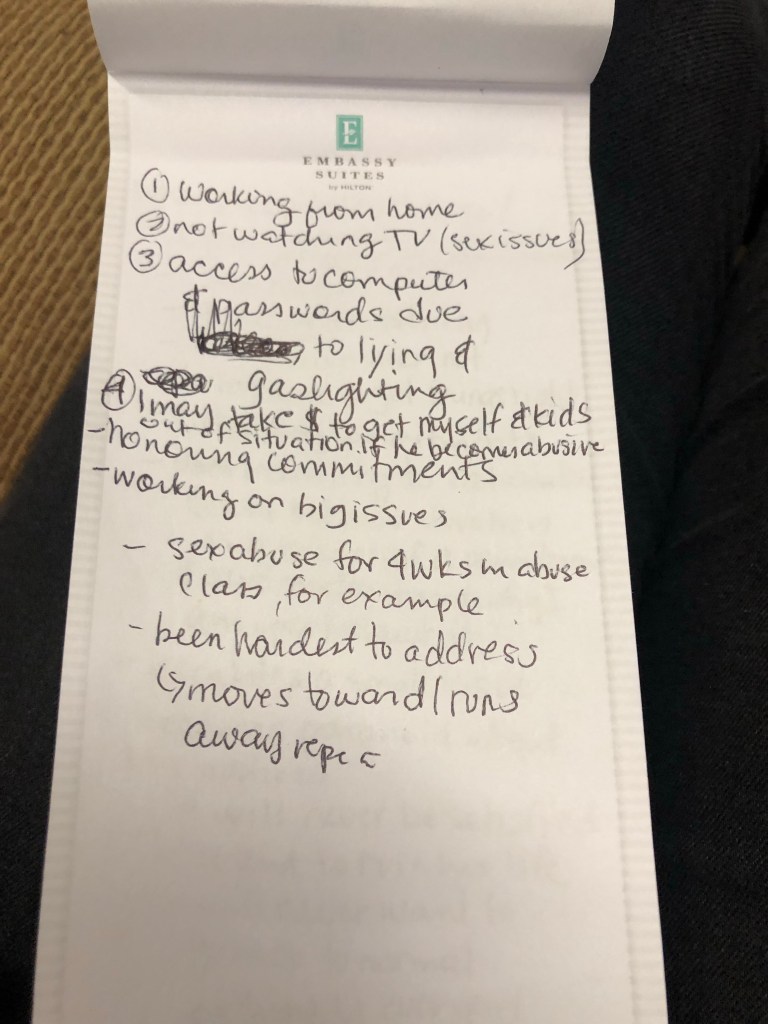 E
EMBASSY
SUITES
by HILTON
① working from home
② not watching TV (sex issues)
③ access to computer
& passwords due
to liying &
gaslighting
④ I may take $ to get myself & kids
out of situation if he becomes abusive
- honoring commitments
- working on big issues
- sex abuse for 4 wks in abuse
class, for example
- been hardest to address
↳ moves toward / runs
away